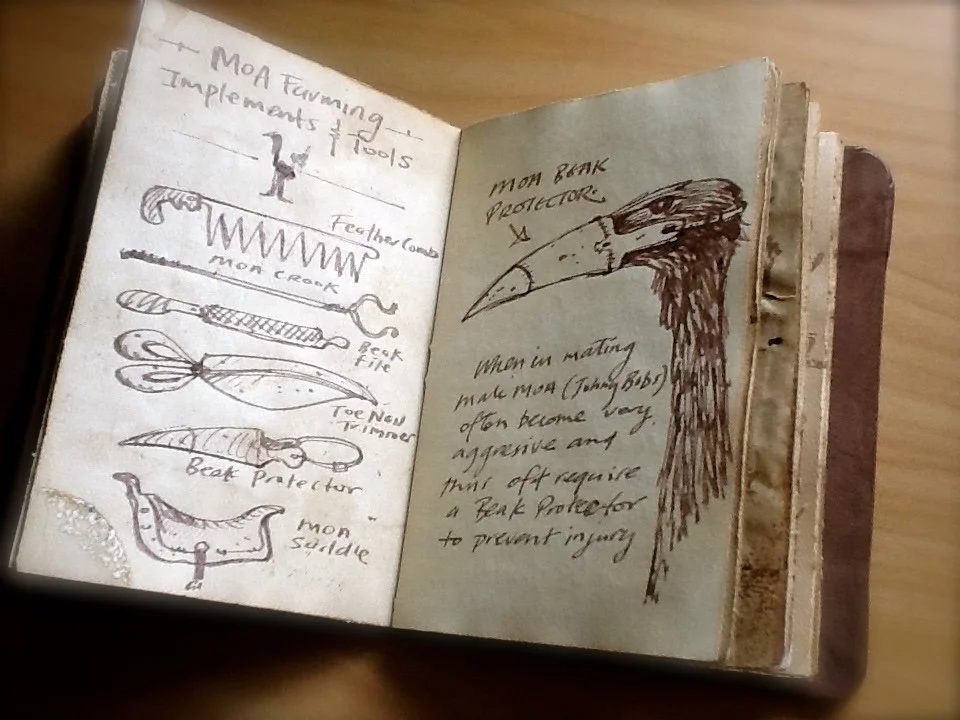 MOA Farming
Implements & Tools
Feather Comb
MOA CROOK
Beak
File
Toe Nail
Trimmer
Beak Protector
MOA
Saddle
MOA BEAK
PROTECTOR
When in mating
male MOA (Johnny Bobs)
often become very
aggresive and
thus oft require
a Beak Protector
to prevent injury